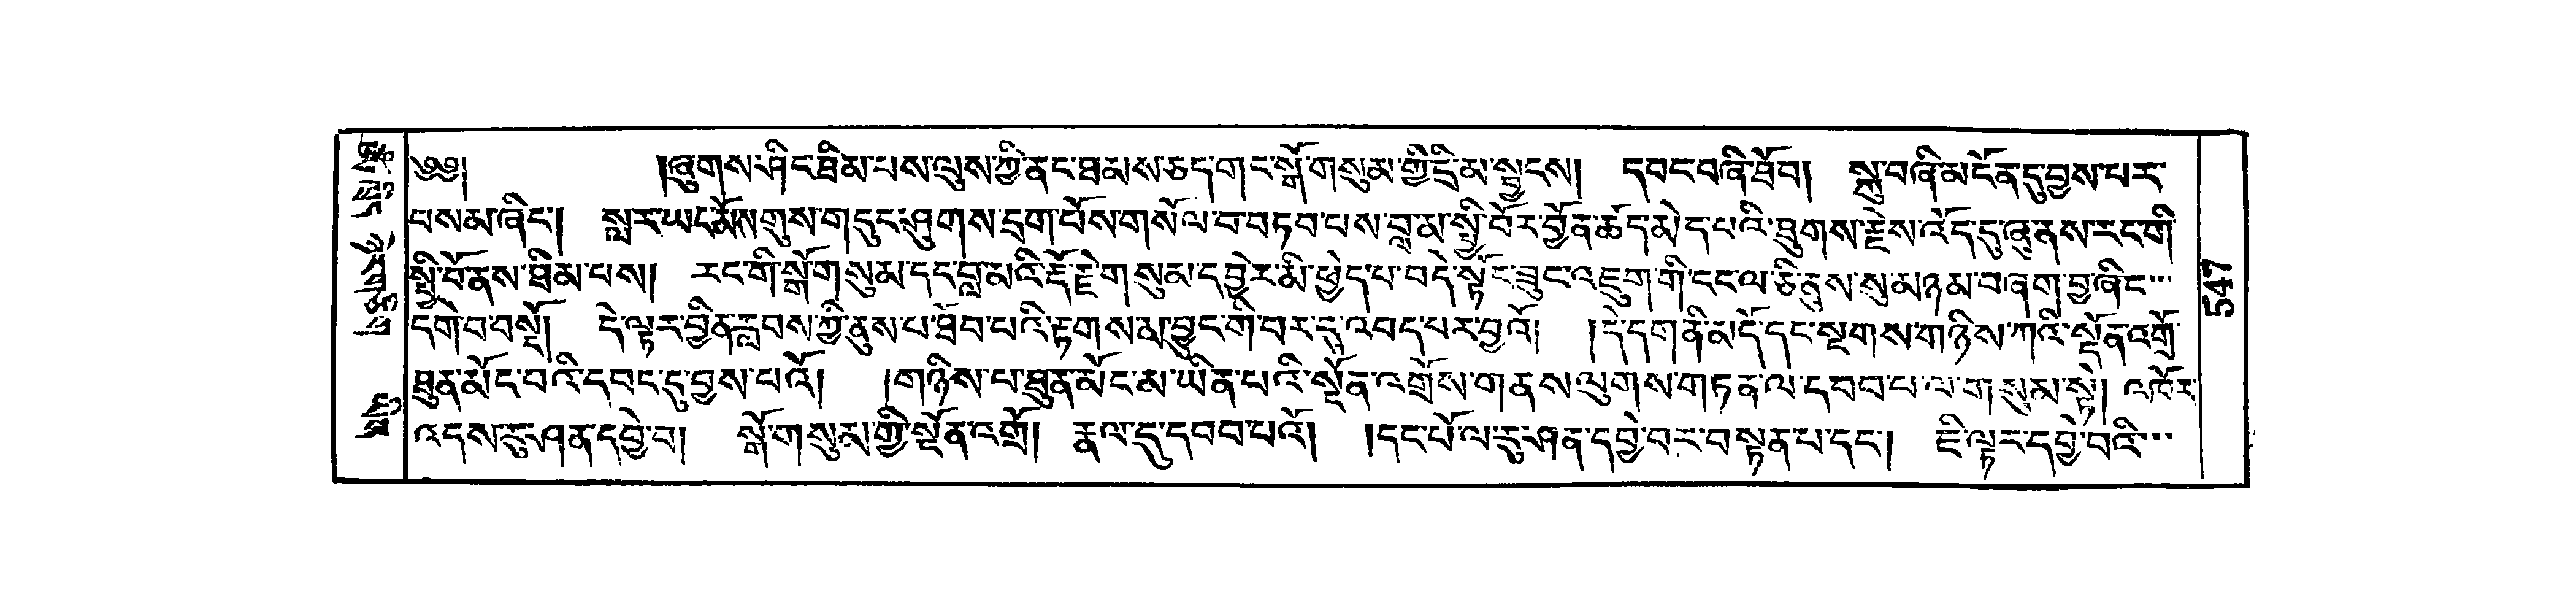 ༄༅། །ཞུགས་ཤིང་ཐིམ་པས་ལུས་ཀྱི་ནང་ཐམས་ཅད་གང་སྒོ་གསུམ་གྱི་དྲི་མ་སྦྱངས། དབང་བཞི་ཐོབ། སྐུ་བཞི་མངོན་དུ་བྱས་པར་
པསམ་ཞིང་། སླར་ཡང་མོས་གུས་གདུང་ཤུགས་དྲག་པོས་གསོལ་བ་བཏབ་པས་བླ་མ་སྤྱི་བོར་བྱོན་ཚད་མེད་པའི་ཐུགས་རྗེས་འོད་དུ་ཞུ་ནས་རང་གི
སྤྱི་བོ་ནས་ཐིམ་པས། རང་གི་སྒོ་གསུམ་དང་བླ་མའི་རྡོ་རྗེ་གསུམ་དབྱེར་མི་ཕྱེད་པ་བདེ་སྟོང་ཟུང་འཇུག་གི་ངང་ལ་ཅི་ནུས་སུ་མཉམ་བཞག་བྱ་ཞིང་…
དགེ་བ་བསྔོ། དེ་ལྟར་བྱིན་རླབས་ཀྱི་ནུས་པ་ཐོབ་པའི་རྟགས་མ་བྱུང་གི་བར་དུ་འབད་པར་བྱའོ། །དེ་དག་ནི་མདོ་དང་སྔགས་གཉིས་ཀའི་སྔོན་འགྲོ་
ཐུན་མོང་བའི་དབང་དུ་བྱས་པའོ། །གཉིས་པ་ཐུན་མོང་མ་ཡིན་པའི་སྔོན་འགྲོས་གནས་ལུགས་གཏན་ལ་དབབ་པ་ལ་གསུམ་སྟེ། འཁོར་
འདས་རུ་ཤན་དབྱེ་བ། སྒོ་གསུམ་གྱི་སྔོན་འགྲོ། རྣལ་དུ་དབབ་པའོ། །དང་པོ་ལ་རུ་ཤན་དབྱེ་བར་བསྟན་པ་དང་། ཇི་ལྟར་དབྱེ་བའི་…
745